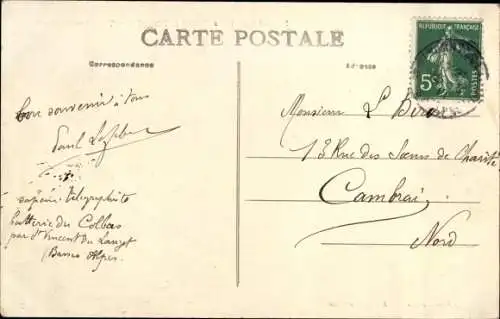 CARTE POSTALE
Correspondance
Adresse
RÉPUBLIQUE FRANÇAISE
5c
POSTES
Bon souvenir à tous
Paul
sapeur télégraphiste
batterie du Colbas
par St Vincent du Lauzet
(Basses Alpes.
Monsieur L.
13 Rue des Sœurs de Charité
Cambrai
Nord